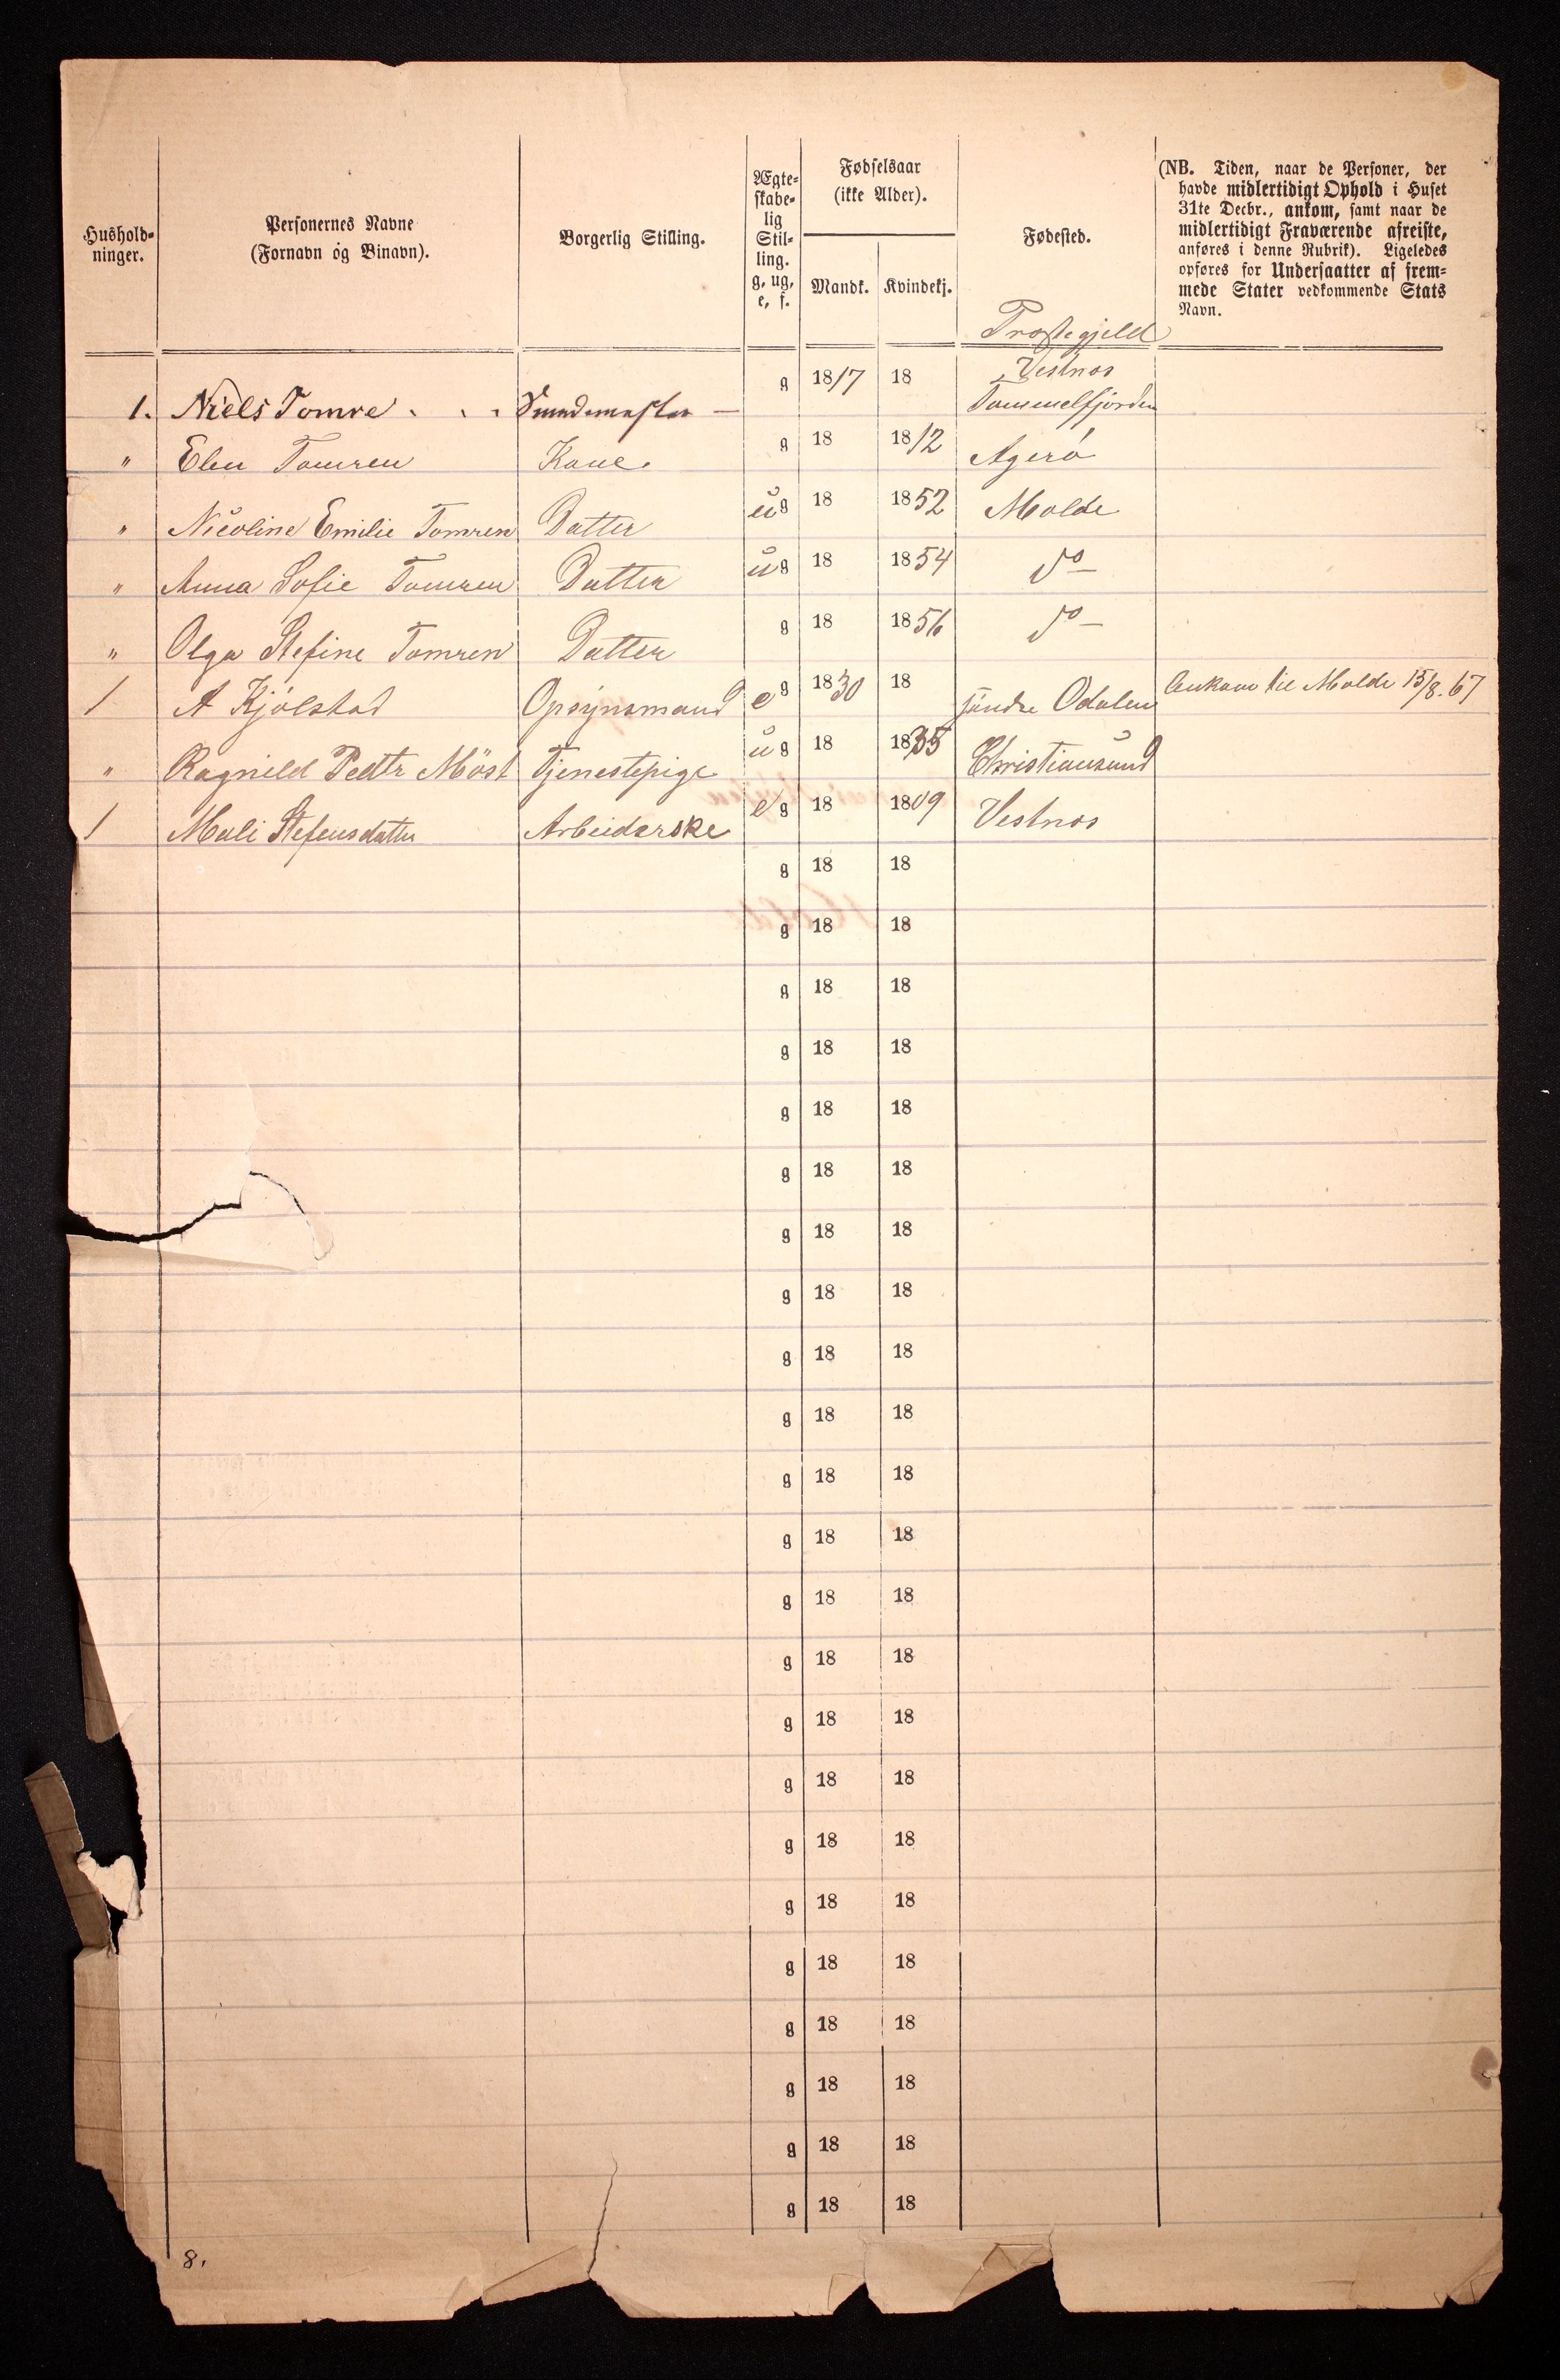 Hushold-
ninger.
Personernes Navne
(Fornavn og Binavn).
Borgerlig Stilling.
Ægte-
skabe-
lig
Stil-
ling.
g, ug,
e, f.
Fødselsaar
(ikke Alder).
Mandk. Kvindekj.
Fødested.
Præstegjeld
(NB. Tiden, naar de Personer, der
havde midlertidigt Ophold i Huset
31te Decbr., ankom, samt naar de
midlertidigt Fraværende afreiste,
anføres i denne Rubrik). Ligeledes
opføres for Undersaatter af frem-
mede Stater vedkommende Stats
Navn.
1. Niels Tomre . . . g 1817 18 Vestnos
" Elen Tomren Kone. g 18 1812 Agerö
" Nicoline Emilie Tomren Datter ug 18 1852 Molde
" Anna Sofie Tomren Datter ug 18 1854 do
" Olga Stefine Tomren Datter g 18 1856 do
1 A Kjölstad Opsynsmand eg 1830 18 söndre Odalen Ankom til Molde 15/8. 67
" Ragnild Pedtr Möst Tjenestepige ug 18 1835 Christiansund
1 Mali Stefensdatter Arbeiderske eg 18 1809 Vestnos
g 18 18
g 18 18
g 18 18
g 18 18
g 18 18
g 18 18
g 18 18
g 18 18
g 18 18
g 18 18
g 18 18
g 18 18
g 18 18
g 18 18
g 18 18
g 18 18
g 18 18
g 18 18
g 18 18
g 18 18
g 18 18
g 18 18
g 18 18
8.